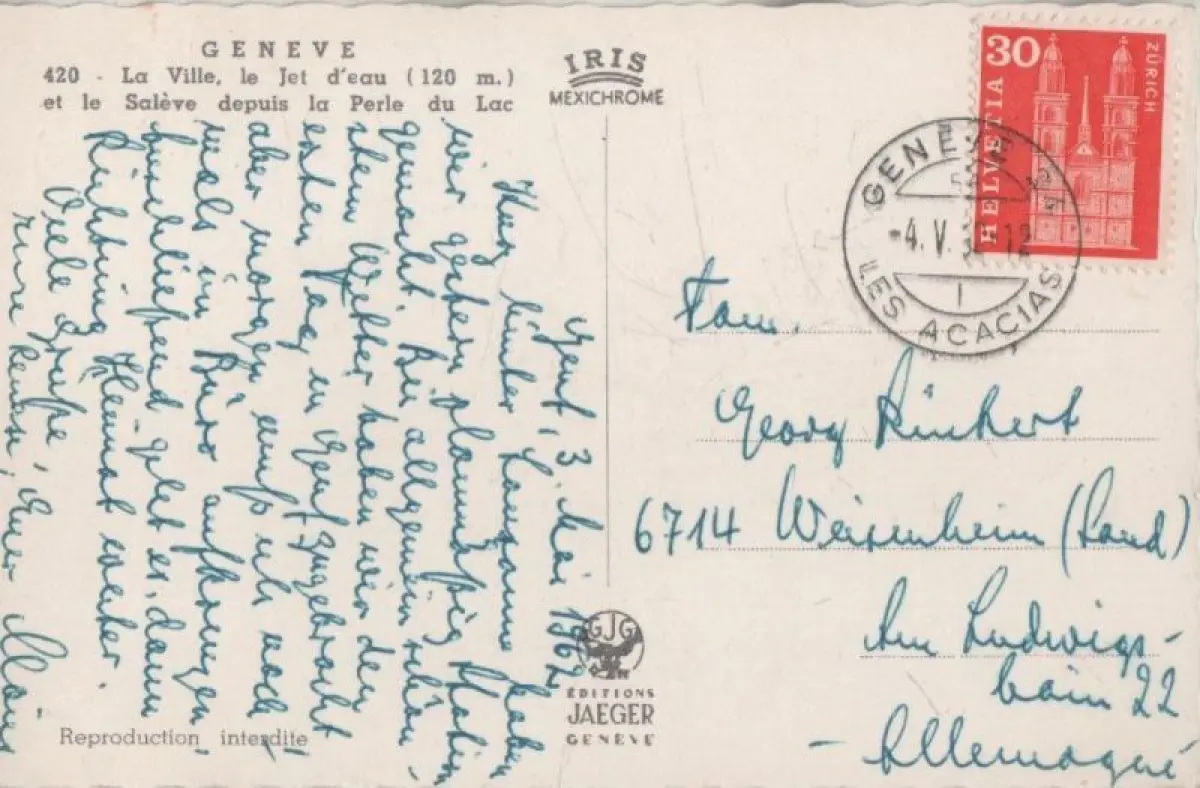 GENEVE
420 - La Ville, le Jet d'eau (120 m.)
et le Salève depuis la Perle du Lac
IRIS
MEXICHROME
30
HELVETIA
ZÜRICH
GENEVE 24
-4. V. 12
LES ACACIAS
Genf, 3. Mai 1962
Kurz hinter Lausanne haben
wir gestern planmäßig Station
gemacht. Bei allgemein schön-
stem Wetter haben wir den
ersten Tag in Genf zugebracht
aber morgen muß ich noch-
mals im Büro aufkreuzen,
anschließend geht es dann
Richtung Heimat weiter.
Viele Grüße, Euer
Fam.
Georg Rinkert
6714 Weisenheim (Sand)
Am Ludwigs-
hain 22
- Allemagne
GJG
EDITIONS
JAEGER
GENEVE
Reproduction interdite